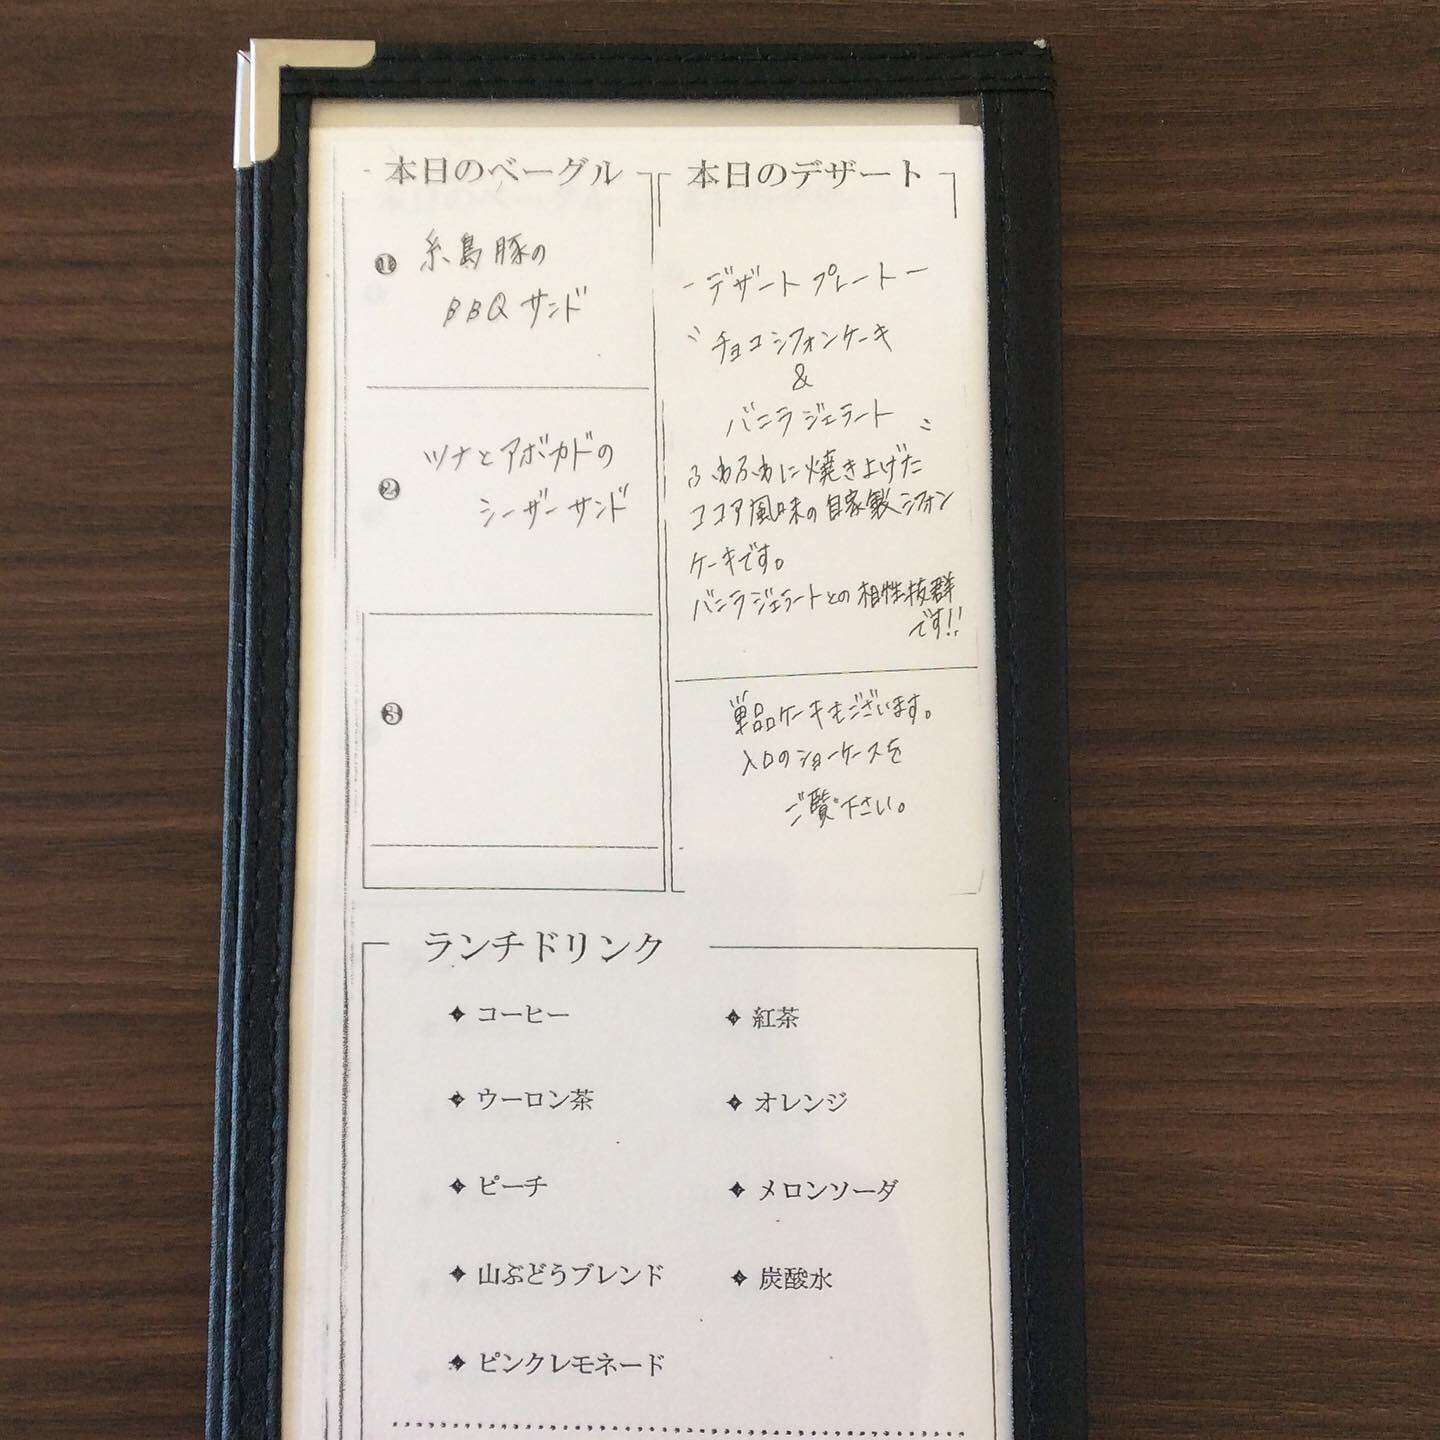 本日のベーグル
❶ 糸島豚の
BBQサンド
❷ ツナとアボカドの
シーザーサンド
❸
本日のデザート
-デザートプレート-
〝チョコシフォンケーキ
&
バニラジェラート〟
ふわふわに焼き上げた
ココア風味の自家製シフォン
ケーキです。
バニラジェラートとの相性抜群
です!!
単品ケーキもございます。
入口のショーケースを
ご覧下さい。
ランチドリンク
コーヒー
紅茶
ウーロン茶
オレンジ
ピーチ
メロンソーダ
山ぶどうブレンド
炭酸水
ピンクレモネード